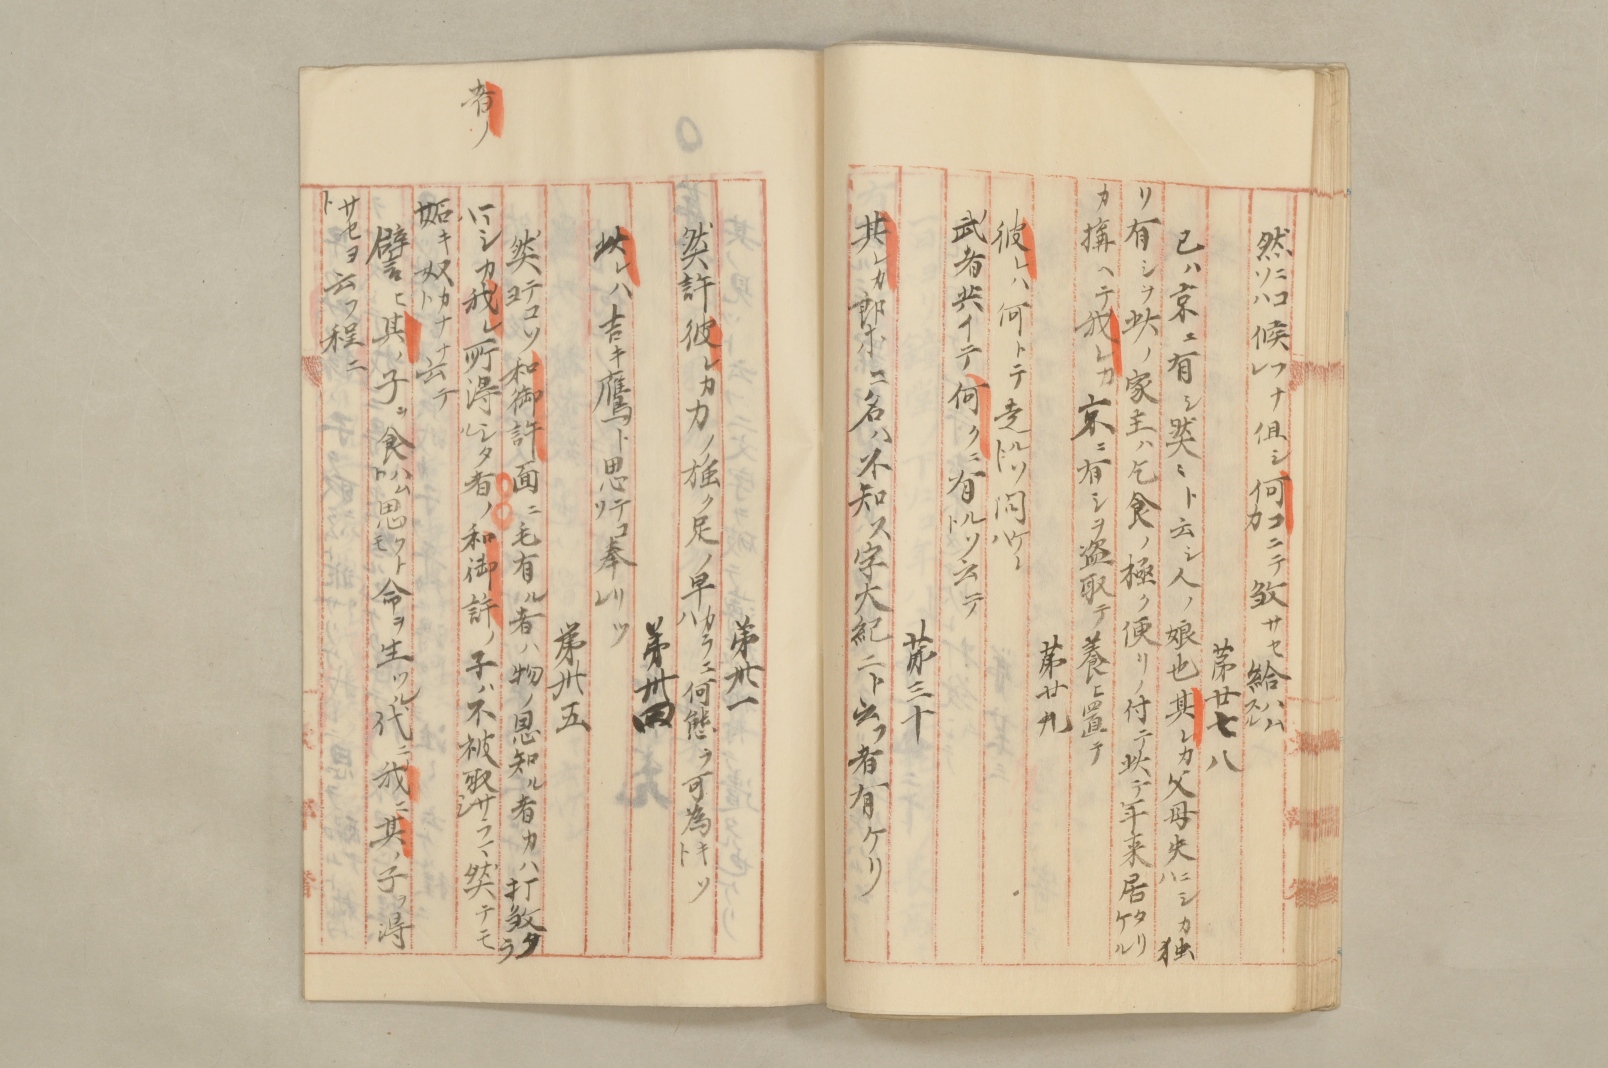 然ニコソハ候フナレ但シ何コニテカ敓サセ給ハムスル
第廿七八
己ハ京ニ有シ然々ト云シ人ノ娘也其レカ父母失ニシカハ独
リ有シヲ此ノ家主ハ乞食ノ極ク便リノ付テ此テ年来居タリケル
カ搆ヘテ我レカ京ニ有シヲ盗取テ養ヒ置テ
第廿九
彼レハ何トテ走ルソト問ハヽケレハ
武者共イテ何クニ有ルソト云テ
第三十
其レカ郎等ニ名ハ不知ス字大紀ニト云フ者有ケリ
第卅一
然許彼レカ力ノ強ク足ノ早カラムニハ何態ヲ可為キソト
第卅四
此レハ吉キ鷹ト思テコソ奉リツレ
第卅五
然テコソヨ和御許面ニ毛有ル者ハ物ノ恩知ル者カハ打敓タラ
ハシカ我レ所得シタル者ノ和御許ノ子ハ不被取サラマシ然テモ
者ノ
妬キ奴カナト云テ
譬ヒ其ノ子ヲ食ハムト思フトモ命ヲ生ツル代ニ我ニ其ノ子ヲ得
サセヨト云フ程ニ